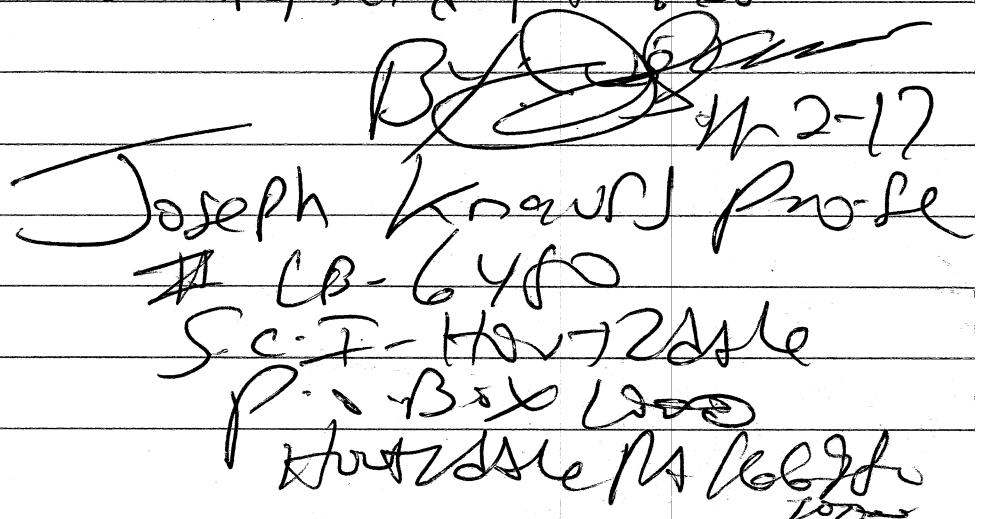 By
2-17
Joseph Knauss Pro-se
# LB-6480
S.C.I-Houtzdale
P.o.Box 1000
Houtzdale PA 16698